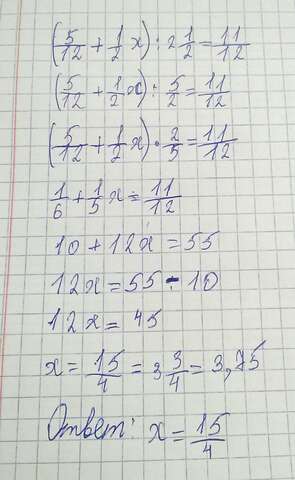 (5/12 + 1/2 x) : 2 1/2 = 11/12
(5/12 + 1/2 x) : 5/2 = 11/12
(5/12 + 1/2 x) · 2/5 = 11/12
1/6 + 1/5 x = 11/12
10 + 12x = 55
12x = 55 - 10
12x = 45
x = 15/4 = 3 3/4 = 3,75
Ответ: x = 15/4